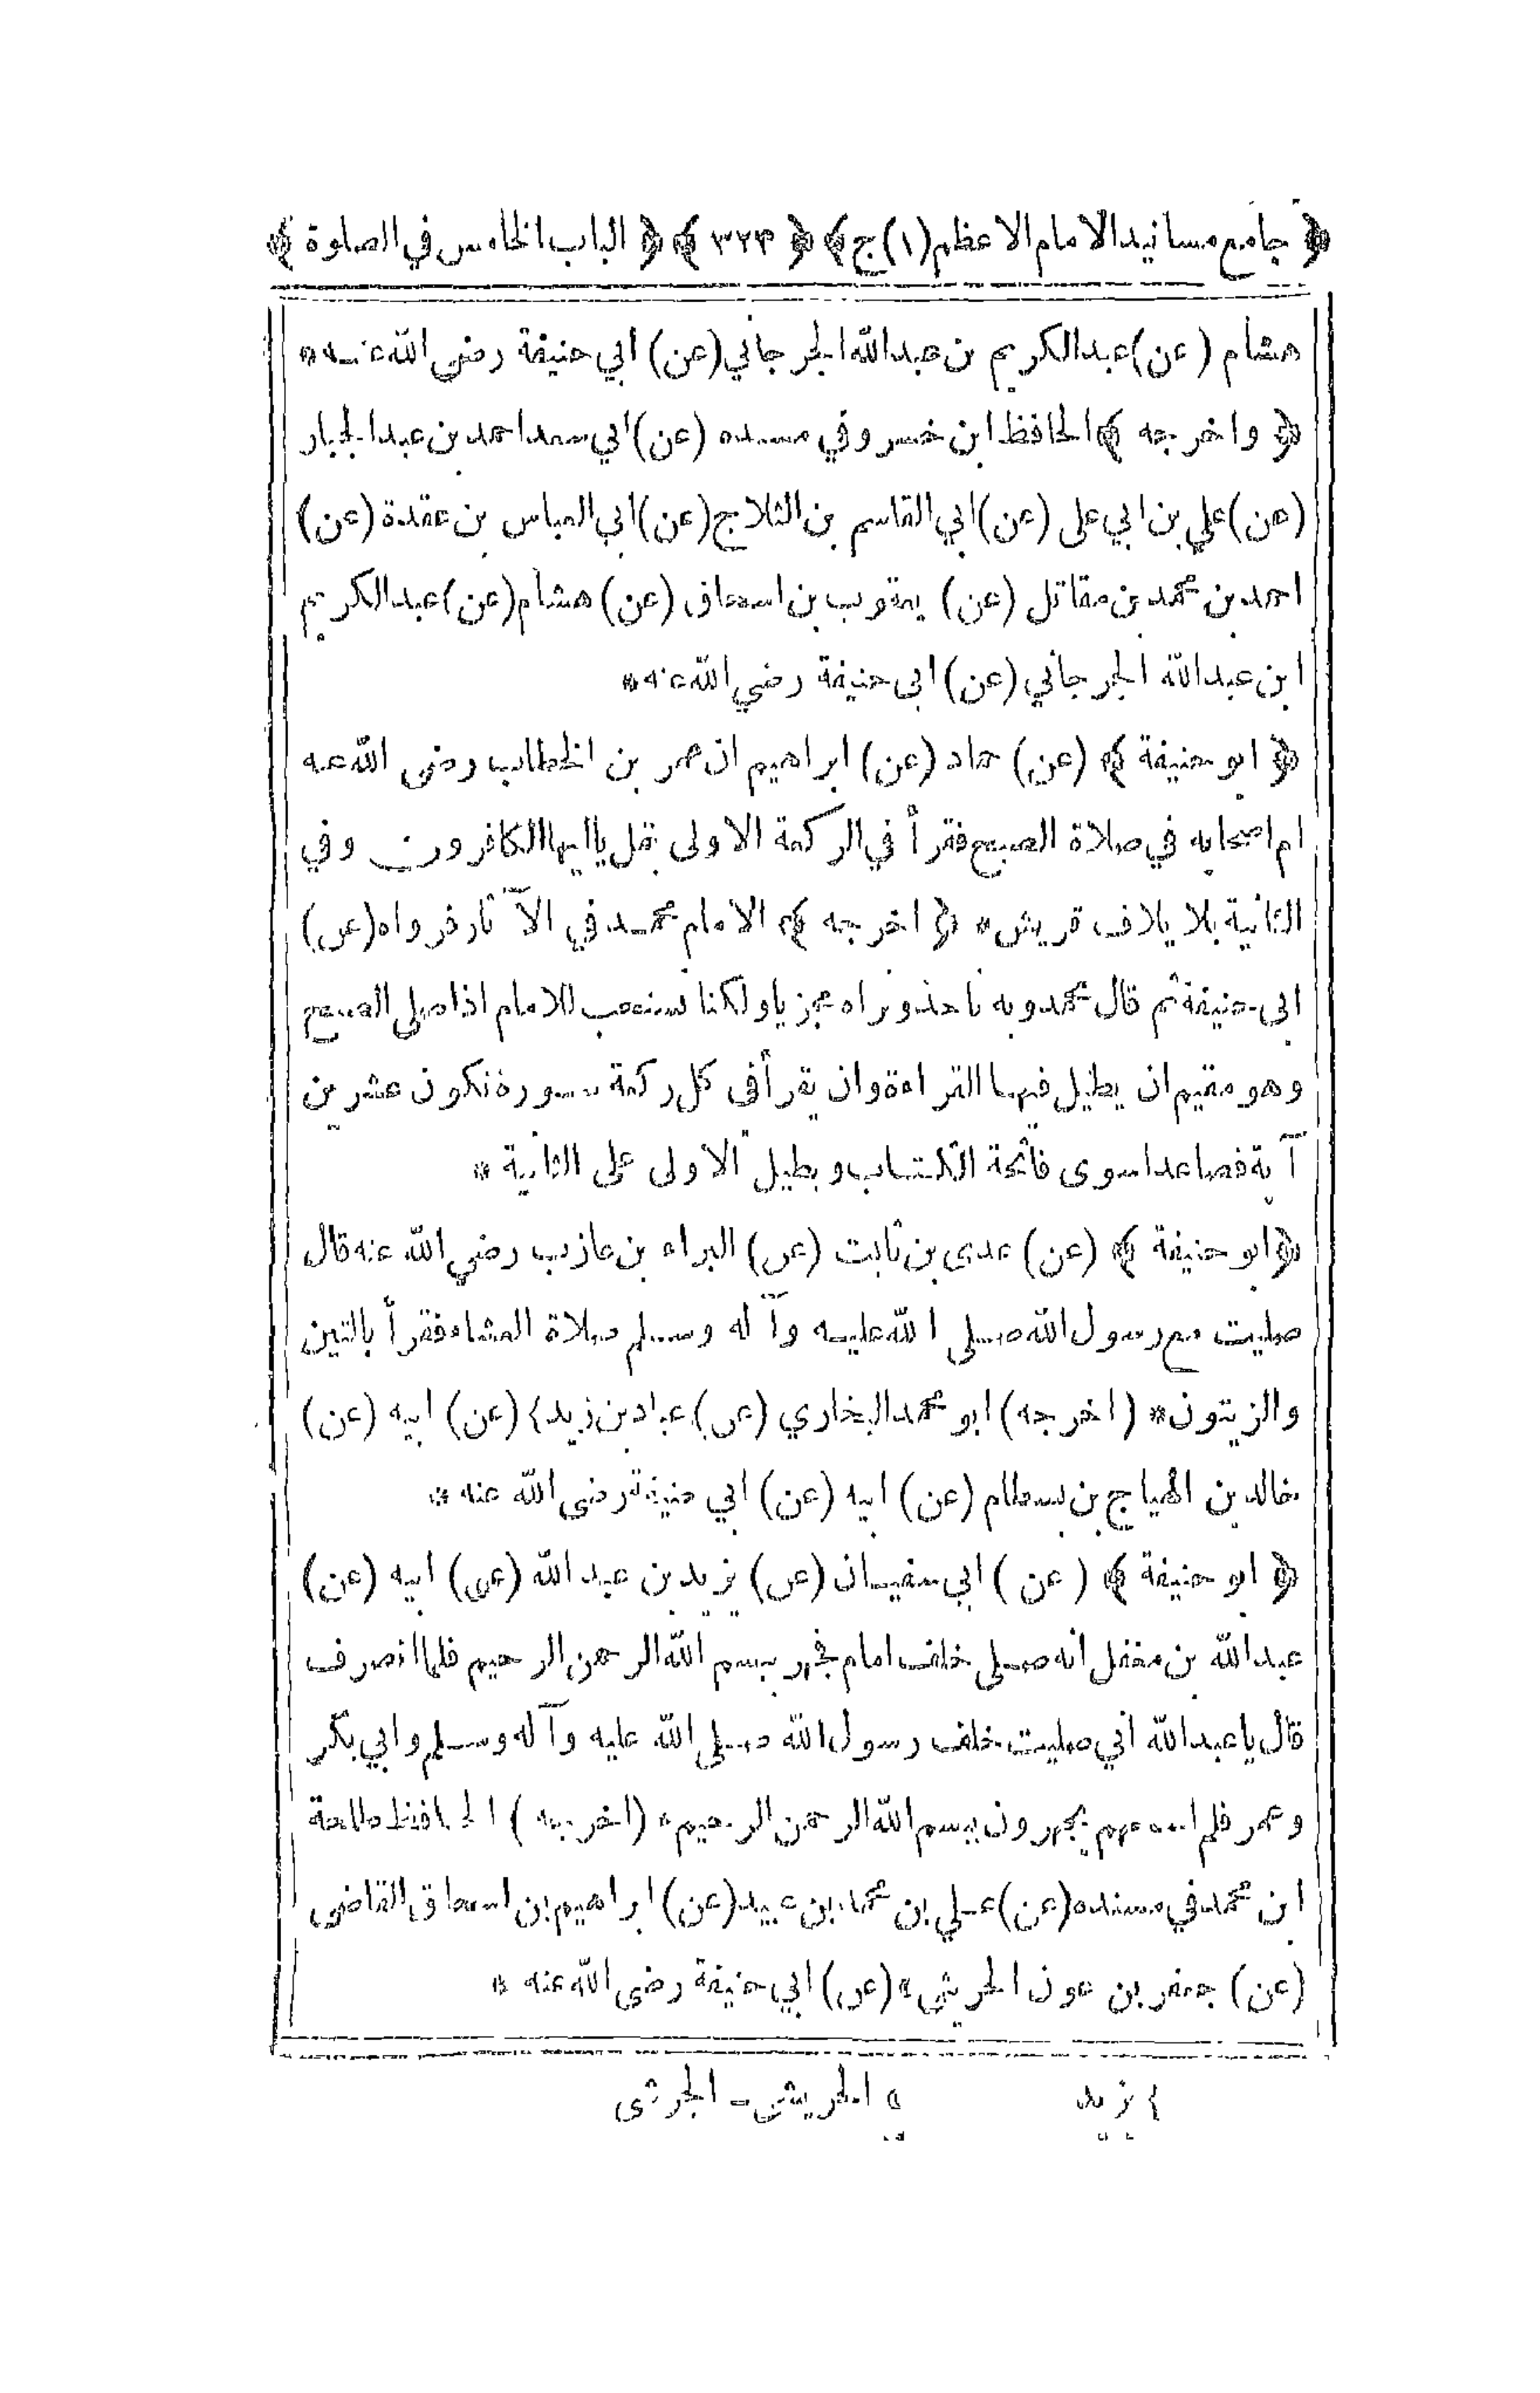 ﴿ جامع مسانيد الامام الاعظم (١) ج ﴾ ﴿ ٣٢٣ ﴾ ﴿ الباب الخامس في الصلوة ﴾
هشام (عن) عبدالكريم بن عبدالله الجرجاني (عن) ابي حنيفة رضي الله عنه *
﴿ واخرجه ﴾ الحافظ ابن خسرو في مسنده (عن) ابي سعد احمد بن عبدالجبار
(عن) علي بن ابي على (عن) ابي القاسم بن الثلاج (عن) ابي العباس بن عقدة (عن)
احمد بن محمد بن مقاتل (عن) يعقوب بن اسحاق (عن) هشام (عن) عبدالكريم
ابن عبدالله الجرجاني (عن) ابى حنيفة رضي الله عنه *
﴿ ابو حنيفة ﴾ (عن) حماد (عن) ابراهيم ان عمر بن الخطاب رضى الله عنه
ام اصحابه في صلاة الصبح فقرأ في الركعة الاولى بقل ياايها الكافرون وفي
الثانية بلايلاف قريش * ﴿ اخرجه ﴾ الامام محمد في الآثار فرواه (عن)
ابى حنيفة ثم قال محمد وبه ناخذ ونراه مجزيا ولكنا نستحب للامام اذا صلى الصبح
وهو مقيم ان يطيل فيها القراءة وان يقرأ فى كل ركعة بسورة تكون عشرين
آية فصاعدا سوى فاتحة الكتاب ويطيل الاولى على الثانية *
﴿ ابو حنيفة ﴾ (عن) عدى بن ثابت (عن) البراء بن عازب رضي الله عنه قال
صليت مع رسول الله صلى الله عليه وآله وسلم صلاة العشاء فقرأ بالتين
والزيتون * (اخرجه) ابو محمد البخاري (عن) عباد بن زيد} (عن) ابيه (عن)
خالد بن الهياج بن بسطام (عن) ابيه (عن) ابي حنيفة رضى الله عنه *
﴿ ابو حنيفة ﴾ (عن) ابي سفيان (عن) يزيد بن عبدالله (عن) ابيه (عن)
عبدالله بن مغفل انه صلى خلف امام فجهر ببسم الله الرحمن الرحيم فلما انصرف
قال ياعبدالله اني صليت خلف رسول الله صلى الله عليه وآله وسلم وابي بكر
وعمر فلم اسمعهم يجهرون ببسم الله الرحمن الرحيم * (اخرجه) الحافظ طلحة
ابن محمد في مسنده (عن) علي بن محمد بن عبيد (عن) ابراهيم بن اسحاق القاضى
(عن) جعفر بن عون الحريثي * (عن) ابي حنيفة رضى الله عنه *
} يزيد * الحريش - الجرثى